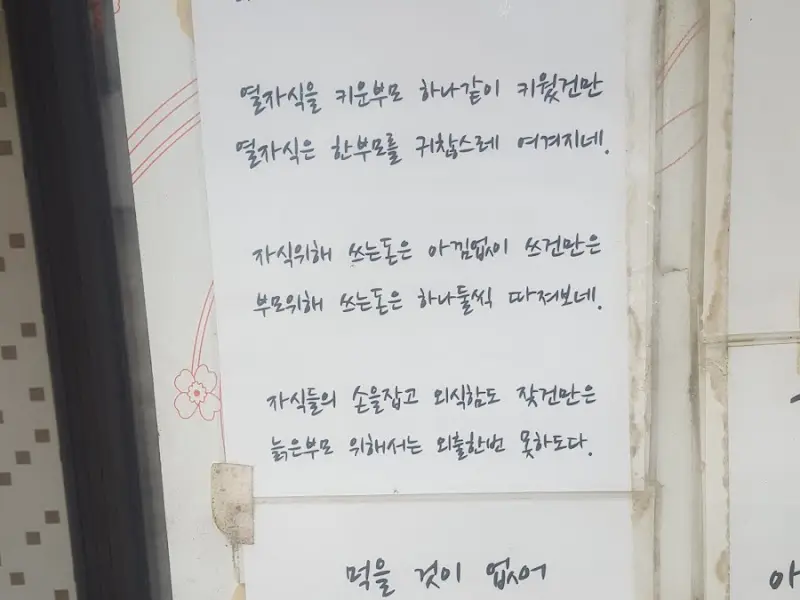 열자식을 키운부모 하나같이 키웠건만
열자식은 한부모를 귀찮스레 여겨지네.
자식위해 쓰는돈은 아낌없이 쓰건만은
부모위해 쓰는돈은 하나둘씩 따져보네.
자식들의 손을잡고 외식함도 잦건만은
늙은부모 위해서는 외출한번 못하도다.
먹을 것이 없어